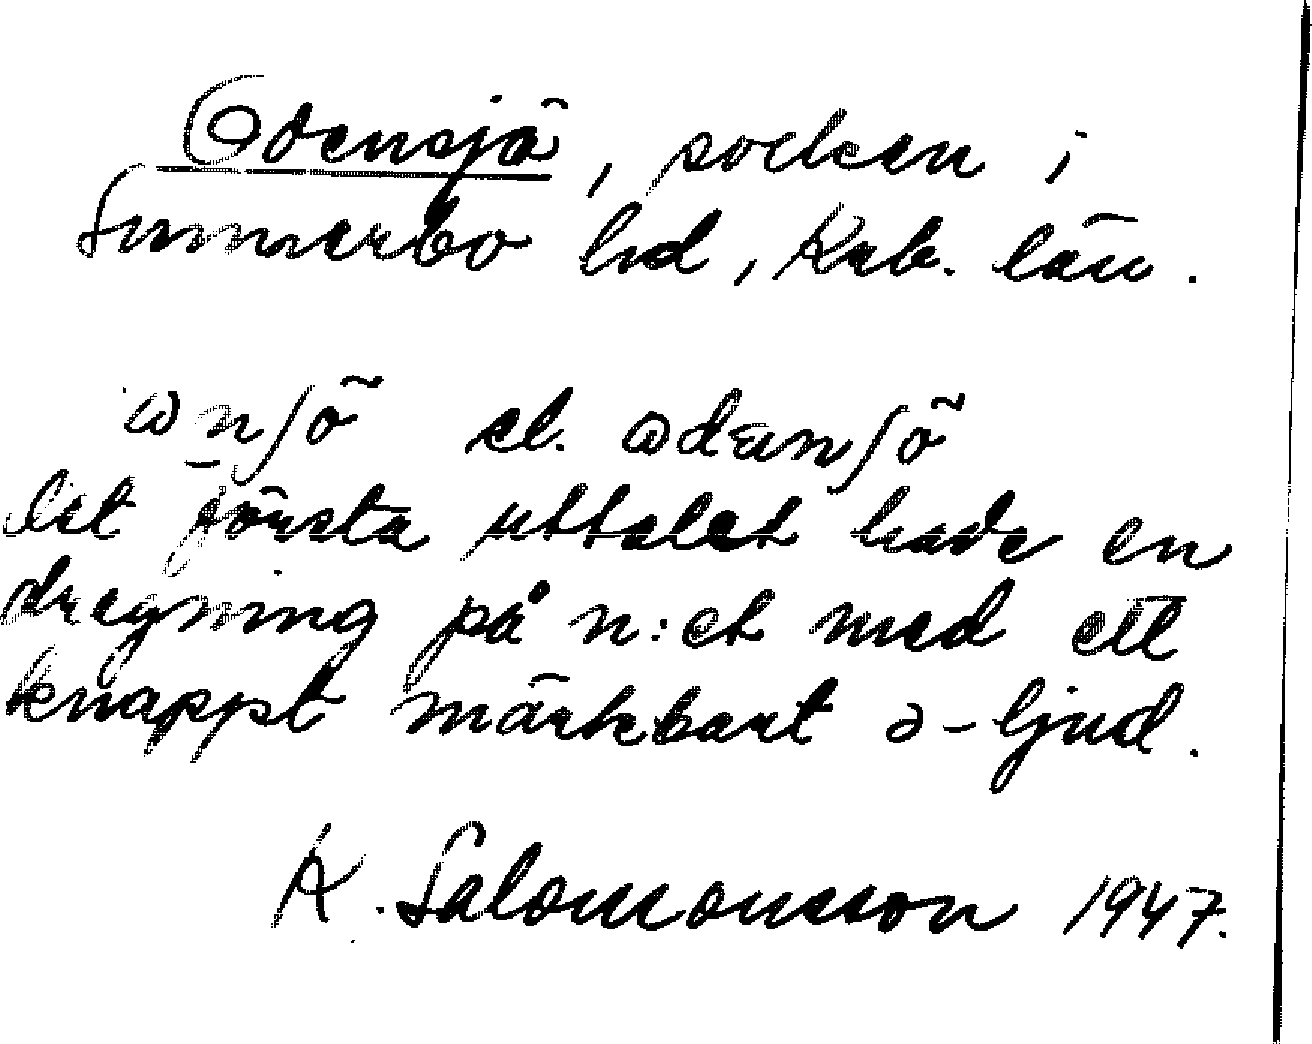 Odensjö, socken i
Sunnerbo hd, Krb. län.
ωnʃö el. ωdænʃö
Det första uttalet hade en
dragning på n:et med ett
knappt märkbart ə-ljud.
K. Salomonsson 1947.